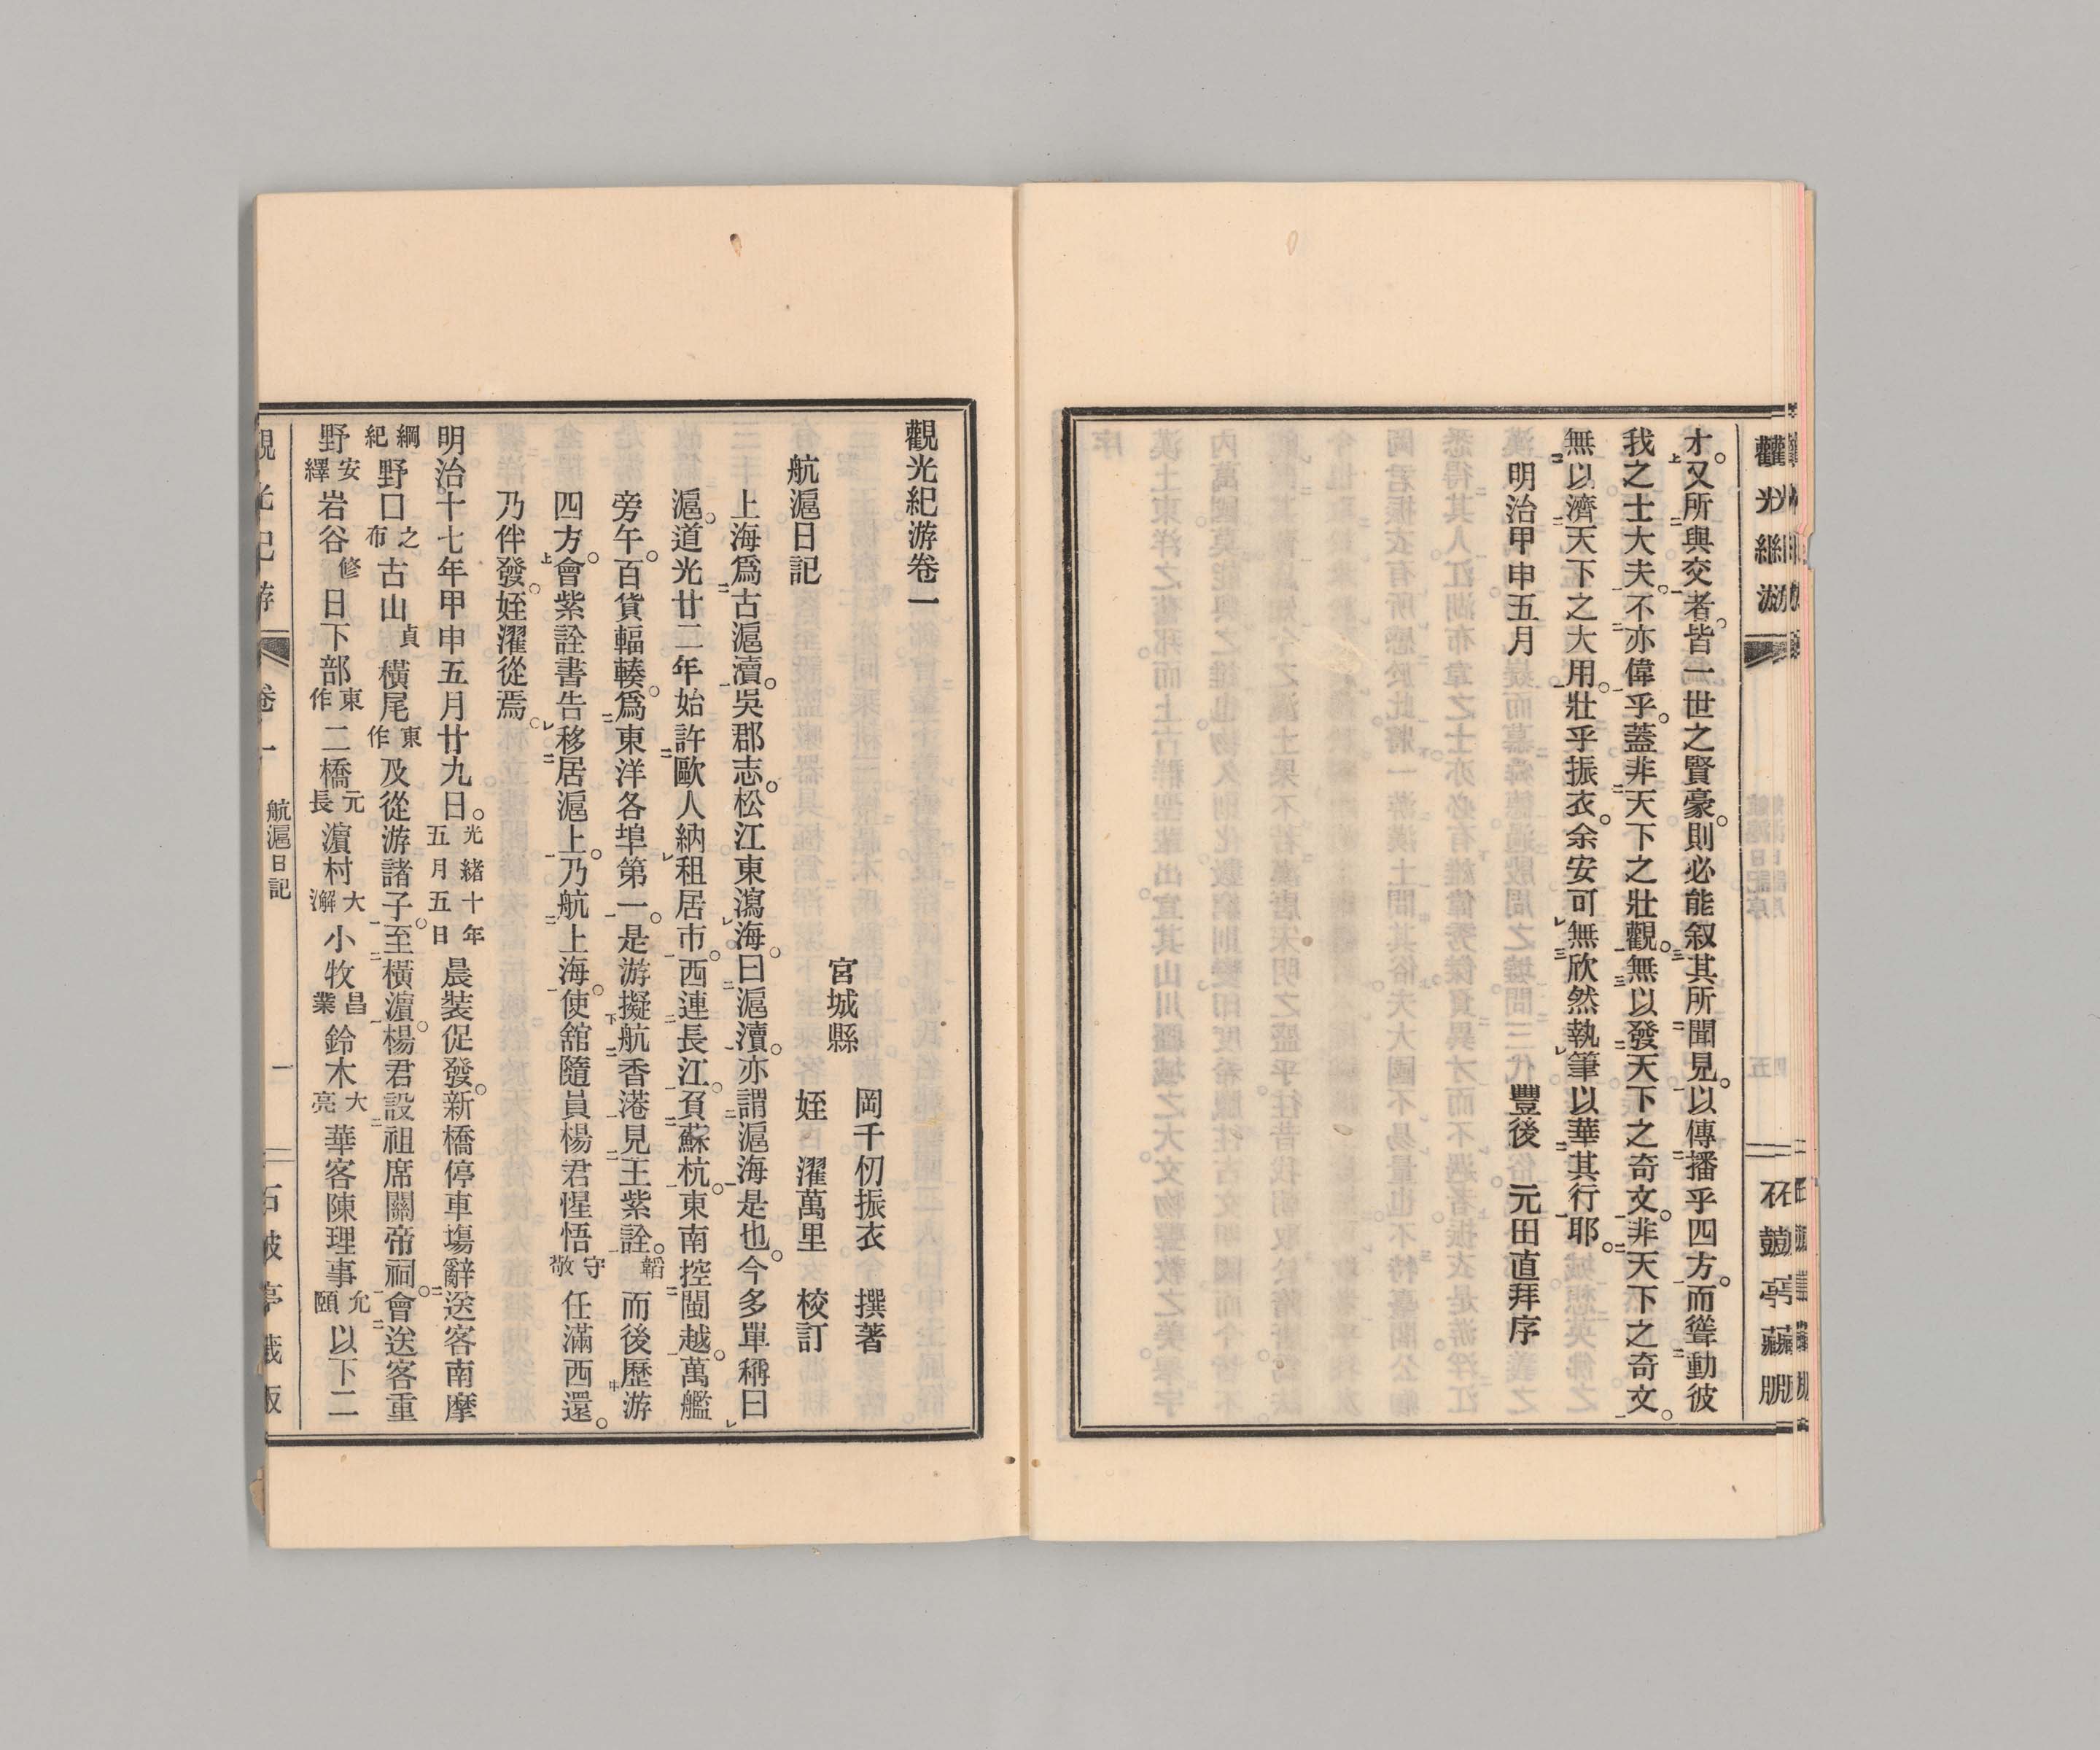 才又所與交者皆一世之賢豪。則必能叙其所聞見。以傳播乎四方。而聳動彼
我之士大夫。不亦偉乎。蓋非天下之壯觀。無以發天下之奇文。非天下之奇文。
無以濟天下之大用。壯乎振衣。余安可無欣然執筆以華其行耶。
明治甲申五月
豐後 元田直拜序
觀光紀游卷一
宮城縣 岡千仞振衣 撰著
姪 濯萬里 校訂
航滬日記
上海爲古滬瀆。吳郡志。松江東瀉海。曰滬瀆。亦謂滬海是也。今多單稱曰
滬。道光廿二年始許歐人納租居市。西連長江。頁蘇杭。東南控閩越。萬艦
旁午。百貨輻輳。爲東洋各埠第一。是游擬航香港見王紫詮。韜而後歷游
四方。會紫詮書告移居滬上。乃航上海。使舘隨員楊君惺悟守敬任滿西還。
乃伴發。姪濯從焉。
明治十七年甲申五月廿九日。光緒十年五月五日晨裝促發。新橋停車塲辭送客南摩
綱紀野口之布古山貞橫尾東作及從游諸子。至橫濵。楊君設祖席關帝祠。會送客重
野安繹岩谷修日下部東作二橋元長濵村大澥小牧昌業鈴木大亮華客陳理事允頤以下二
航滬日記
一